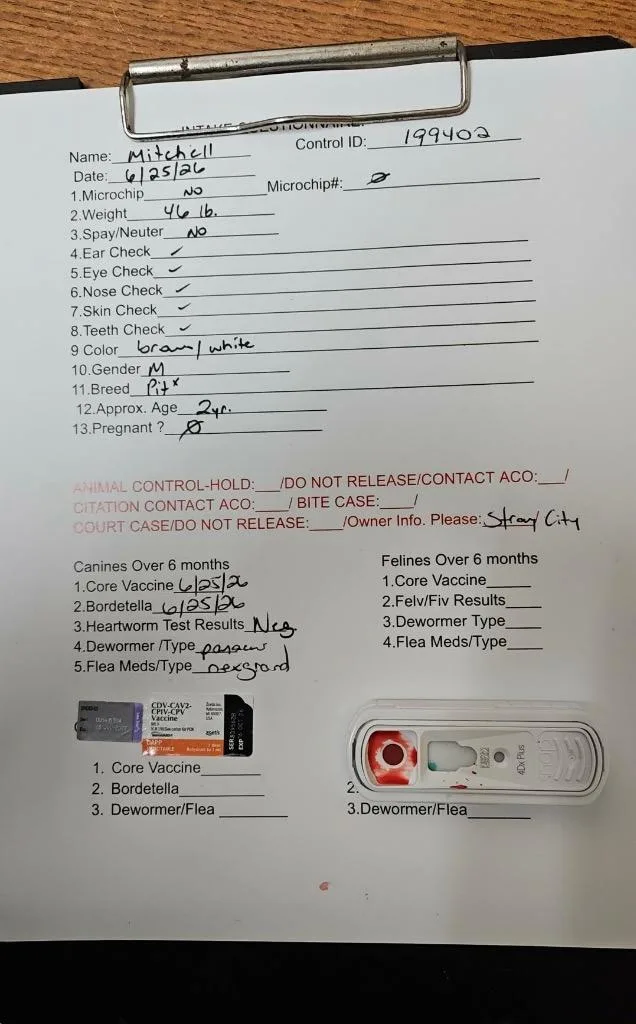 INTAKE QUESTIONNAIRE
Name: Mitchell Control ID: 199402
Date: 6/25/26
1.Microchip NO Microchip#: Ø
2.Weight 46 lb.
3.Spay/Neuter NO
4.Ear Check ✓
5.Eye Check ✓
6.Nose Check ✓
7.Skin Check ✓
8.Teeth Check ✓
9 Color brown/white
10.Gender M
11.Breed Pit x
12.Approx. Age 2yr.
13.Pregnant ? Ø
ANIMAL CONTROL-HOLD:___/DO NOT RELEASE/CONTACT ACO:___/
CITATION CONTACT ACO:____/ BITE CASE:____/
COURT CASE/DO NOT RELEASE:____/Owner Info. Please: Stray/City
Canines Over 6 months
1.Core Vaccine 6/25/26
2.Bordetella 6/25/26
3.Heartworm Test Results Neg
4.Dewormer /Type panacur
5.Flea Meds/Type nexgard
Felines Over 6 months
1.Core Vaccine_____
2.Felv/Fiv Results____
3.Dewormer Type____
4.Flea Meds/Type____
CDV-CAV2-
CPIV-CPV
Vaccine
zoetis
DAPP
SER
EXP
4Dx Plus
1. Core Vaccine_______
2. Bordetella__________
3. Dewormer/Flea ________
2.
3.Dewormer/Flea_______